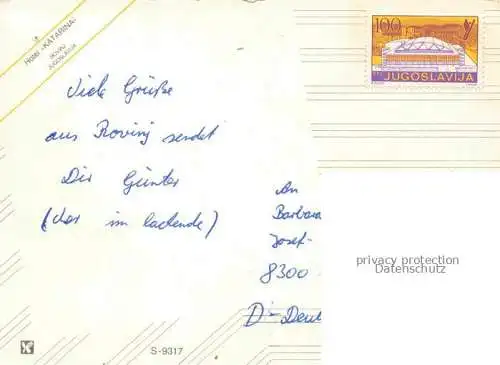 Hotel »KATARINA«
ROVINJ
JUGOSLAVIJA
100
JUGOSLAVIJA
Viele Grüße
aus Rovinj sendet
Dir Günter
(der im
An
Barbara
Josef-
8300
D- Deut
privacy protection
Datenschutz
S-9317